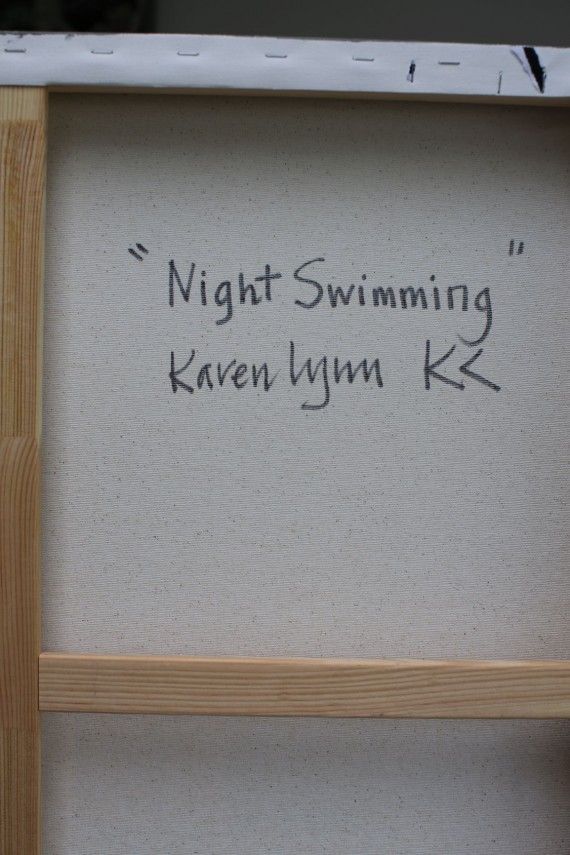 "Night Swimming"
Karen Lynn K<